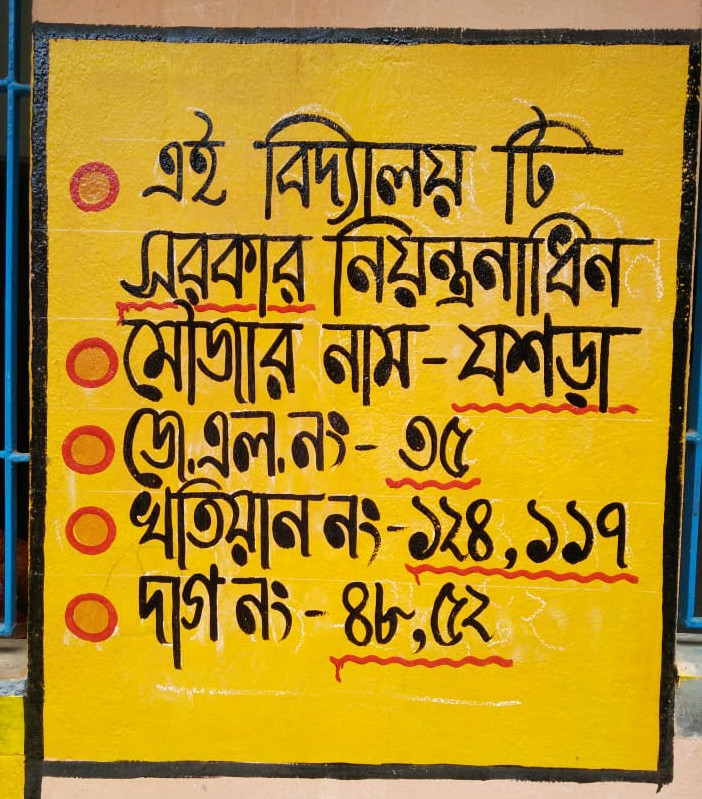 এই বিদ্যালয় টি
সরকার নিয়ন্ত্রনাধিন
মৌজার নাম - যশড়া
জে.এল. নং - ৩৫
খতিয়ান নং - ১২৪, ১১৭
দাগ নং - ৪৮, ৫২